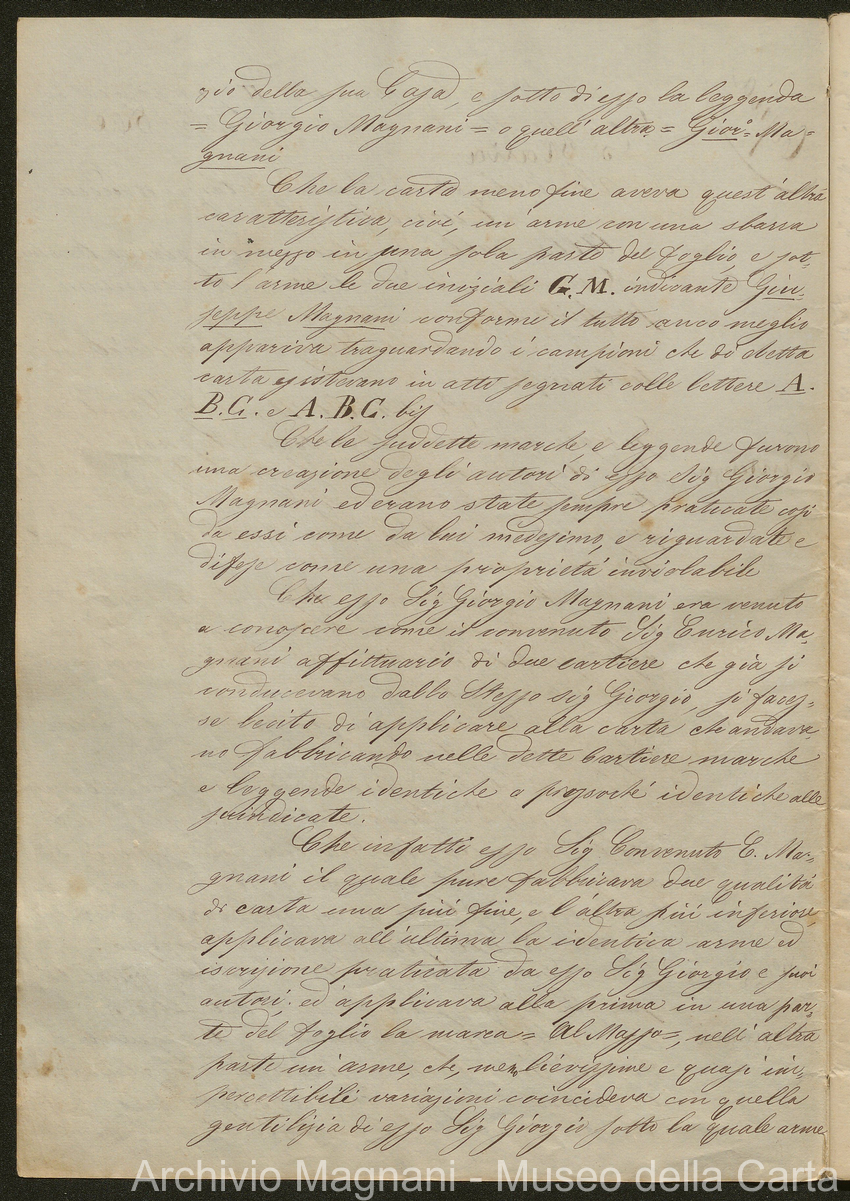 zio della sua Casa, e sotto di esso la leggenda
= Giorgio Magnani = o quell'altra = Gior.o Ma=
gnani
Che la carta meno fine aveva quest'altra
caratteristica, cioé, un'arme con una sbarra
in mezzo in una sola parte del foglio e sot-
to l'arme le due iniziali G. M. indicante Giu-
seppe Magnani conforme il tutto anco meglio
appariva traguardando i campioni che di detta
carta esistevano in atti segnati colle lettere A.
B. C. e A. B. C. bis
Che le suddette marche, e leggende furono
una creazione degli autori di esso Sig Giorgio
Magnani ed erano state sempre praticate cosi
da essi come da lui medesimo, e riguardate e
difese come una proprietá inviolabile
Che esso Sig Giorgio Magnani era venuto
a conoscere come il convenuto Sig Enrico Ma-
gnani affittuario di due cartiere che già si
conducevano dallo Stesso sig Giorgio, si faces-
se lecito di applicare alla carta che andava-
no fabbricando nelle dette Cartiere marche
e leggende identiche o pressoché identiche alle
suindicate.
Che infatti esso Sig Convenuto E. Ma-
gnani il quale pure fabbricava due qualitá
di carta una piú fine, e l'altra piú inferiore,
applicava all'ultima la identica arme ed
iscrizione praticata da esso Sig Giorgio e suoi
autori; ed applicava alla prima in una par-
te del foglio la marca = Al Masso =, nell'altra
parte un'arme, che, meno lievissime e quasi im-
percettibili variazioni coincideva con quella
gentilizia di esso Sig Giorgio sotto la quale arme
Archivio Magnani - Museo della Carta